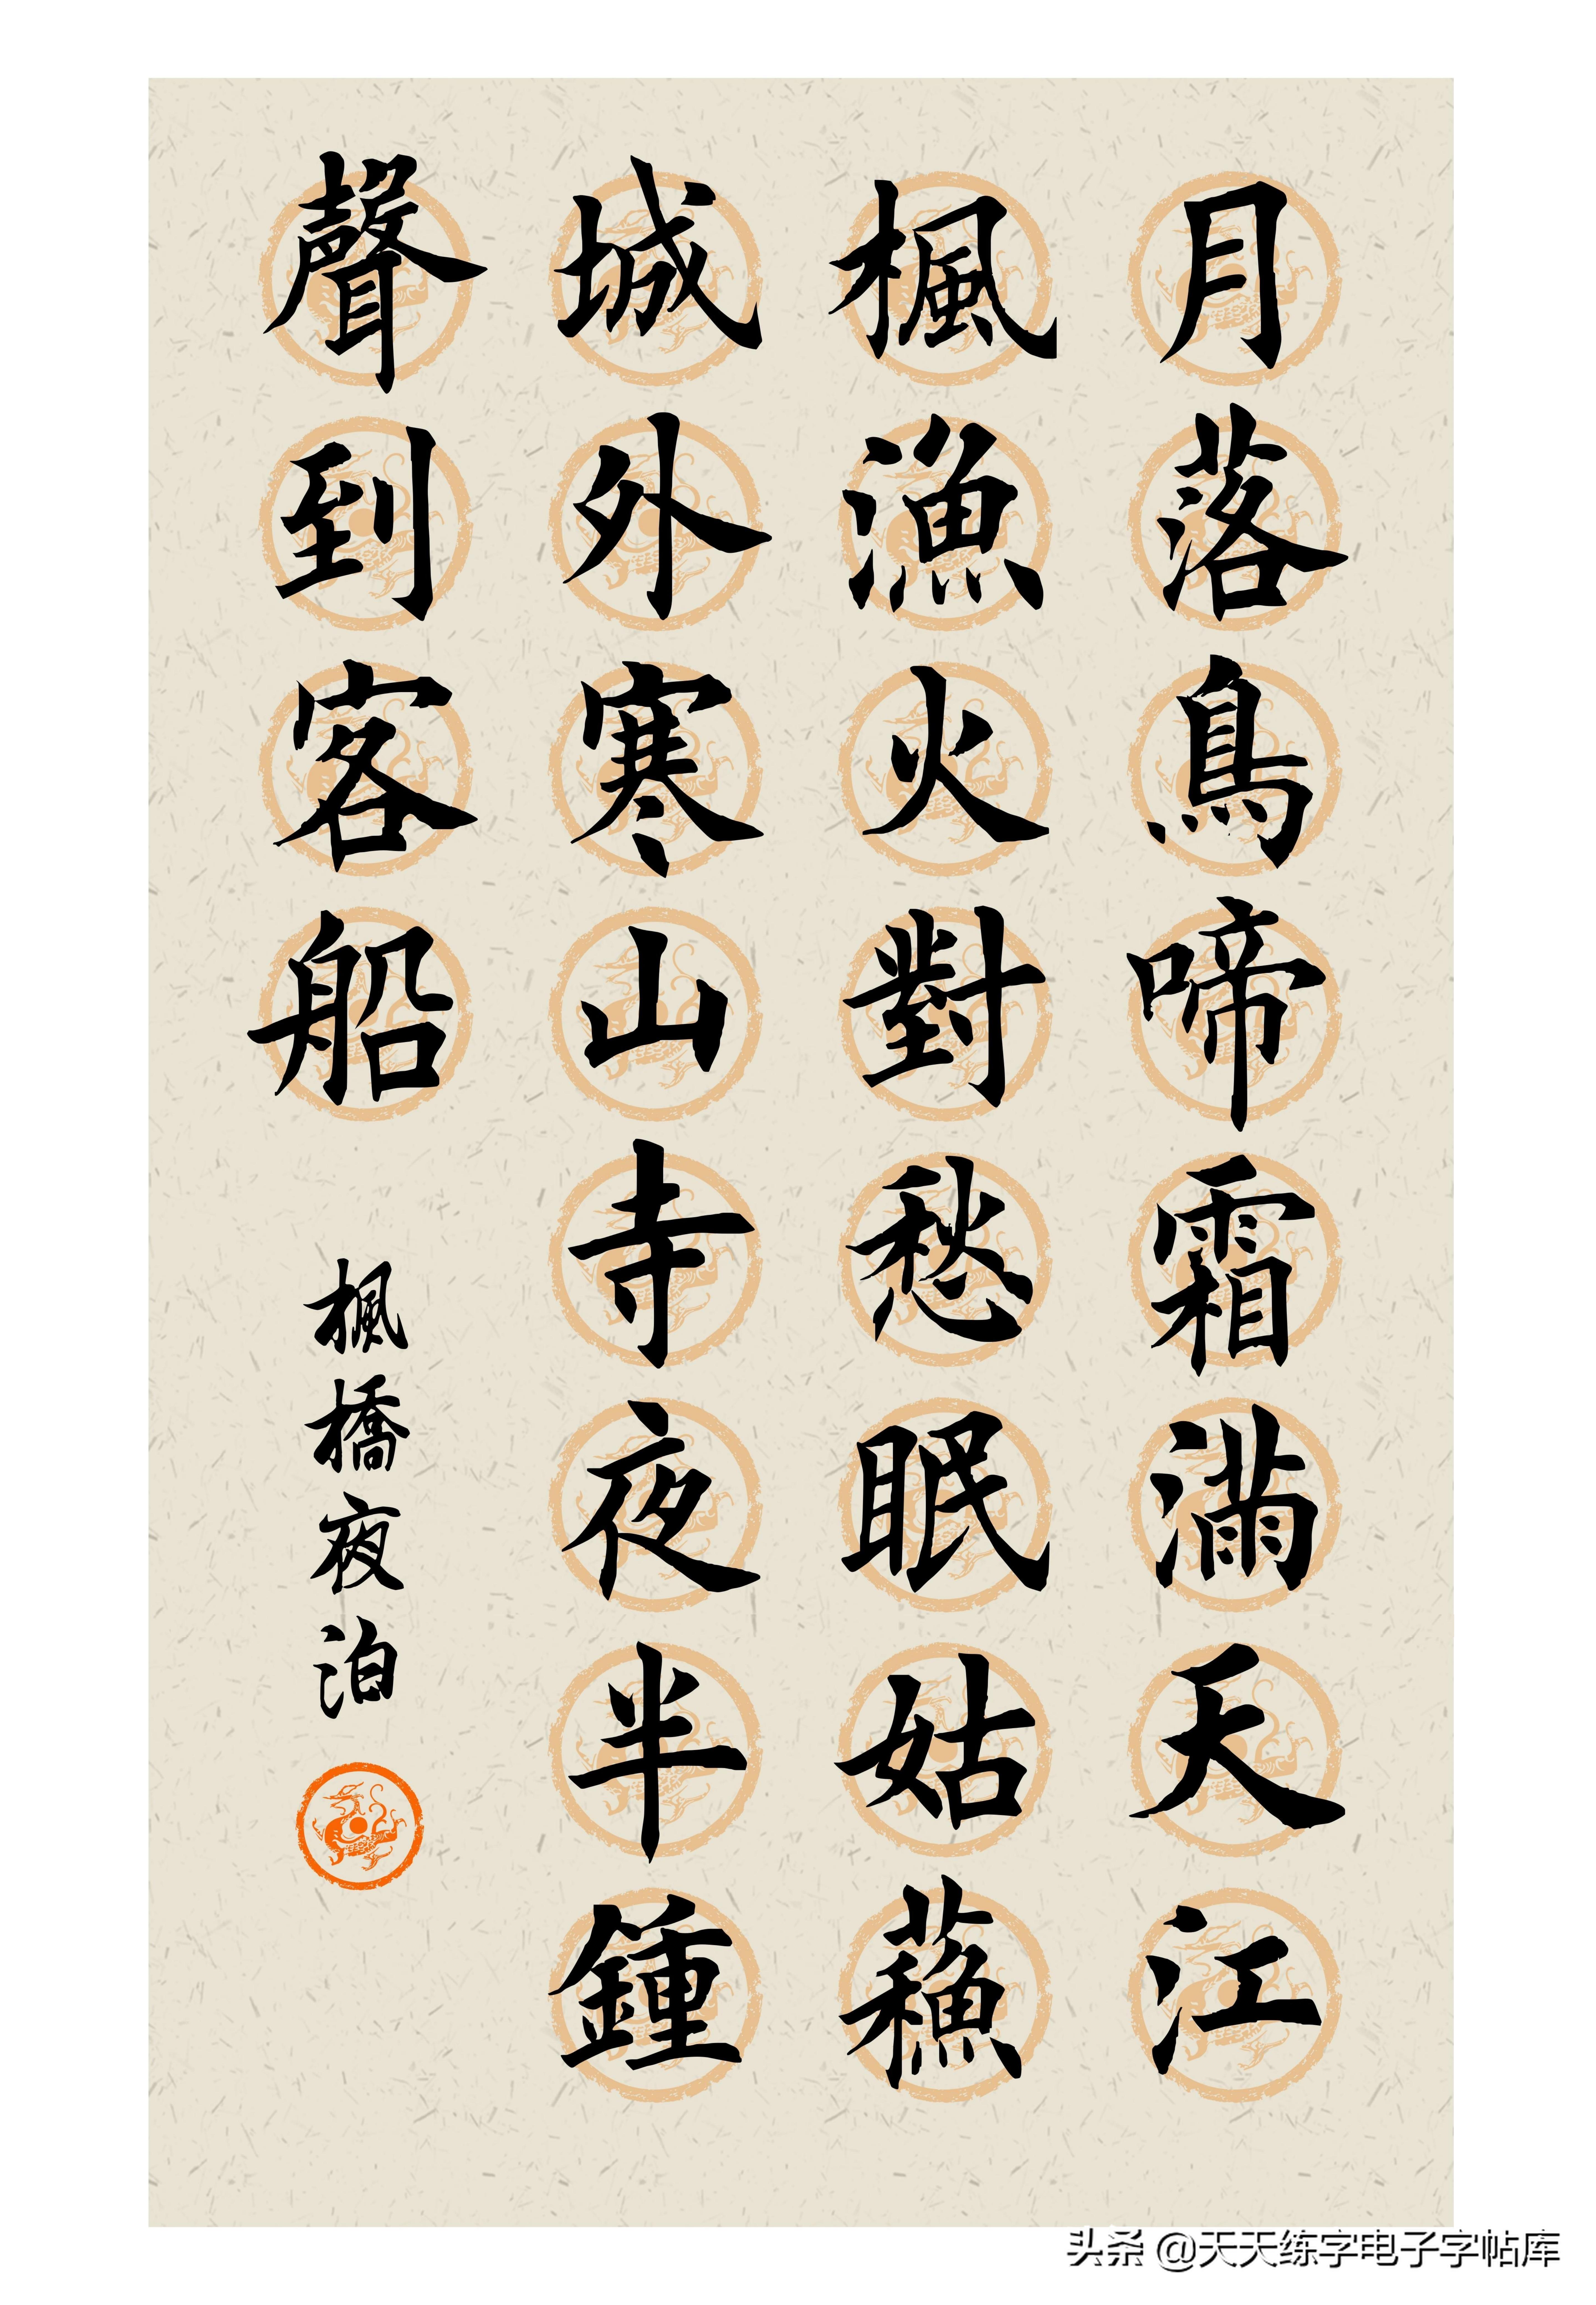 月落鳥啼霜滿天江
楓漁火對愁眠姑蘓
城外寒山寺夜半鍾
聲到客船
楓橋夜泊
头条 @天天练字电子字帖库